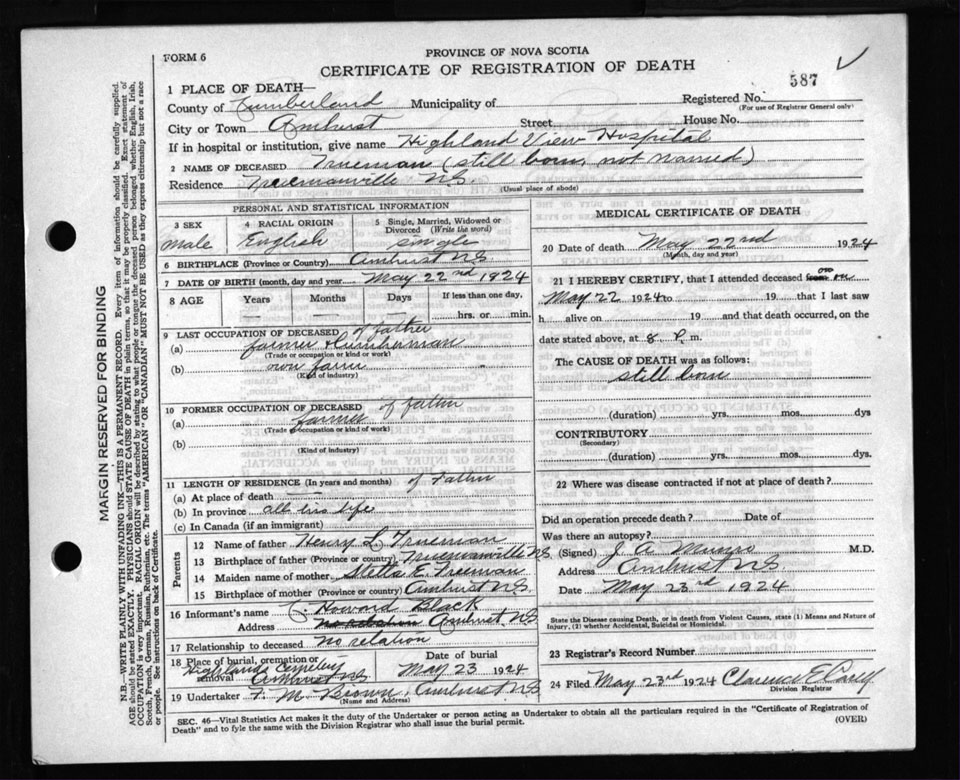 FORM 6
PROVINCE OF NOVA SCOTIA
CERTIFICATE OF REGISTRATION OF DEATH
587
1 PLACE OF DEATH—
County of Cumberland Municipality of Registered No.
(For use of Registrar General only)
City or Town Amherst Street House No.
If in hospital or institution, give name Highland View Hospital
2 NAME OF DECEASED Trueman (still born, not named)
Residence Truemanville N.S.
(Usual place of abode)
PERSONAL AND STATISTICAL INFORMATION
3 SEX
male
4 RACIAL ORIGIN
English
5 Single, Married, Widowed or Divorced (Write the word)
single
6 BIRTHPLACE (Province or Country) Amherst N.S.
7 DATE OF BIRTH (month, day and year) May 22nd 1924
8 AGE Years Months Days If less than one day,
— — — hrs. or min.
9 LAST OCCUPATION OF DECEASED of father
(a) farmer & lumberman
(Trade or occupation or kind of work)
(b) own farm
(Kind of industry)
10 FORMER OCCUPATION OF DECEASED of father
(a) farmer
(Trade or occupation or kind of work)
(b)
(Kind of industry)
11 LENGTH OF RESIDENCE (In years and months) of Father
(a) At place of death —
(b) In province all his life
(c) In Canada (if an immigrant)
Parents
12 Name of father Henry L Trueman
13 Birthplace of father (Province or country) Truemanville N.S.
14 Maiden name of mother Stella E. Freeman
15 Birthplace of mother (Province or country) Amherst N.S.
16 Informant's name Howard Black
Address no relation Amherst N.S.
17 Relationship to deceased no relation
18 Place of burial, cremation or removal Date of burial
Highland Cemetery Amherst N.S. May 23 1924
19 Undertaker F. M. Brown, Amherst N.S.
(Name and Address)
MEDICAL CERTIFICATE OF DEATH
20 Date of death May 22nd 1924
(Month, day and year)
21 I HEREBY CERTIFY, that I attended deceased from on
May 22 1924 to 19 that I last saw
h alive on 19 and that death occurred, on
date stated above, at 8 P m.
The CAUSE OF DEATH was as follows:
still born
(duration) yrs. mos. dys
CONTRIBUTORY
(Secondary)
(duration) yrs. mos. dys.
22 Where was disease contracted if not at place of death?
Did an operation precede death? Date of
Was there an autopsy?
(Signed) J. A. Munro M.D.
Address Amherst N.S.
Date May 23rd 1924
State the Disease causing Death, or in death from Violent Causes, state (1) Means and Nature of Injury, (2) whether Accidental, Suicidal or Homicidal.
23 Registrar's Record Number
24 Filed May 23rd 1924 Clarence E
Division Registrar
SEC. 46—Vital Statistics Act makes it the duty of the Undertaker or person acting as Undertaker to obtain all the particulars required in the "Certificate of Registration of
Death" and to fyle the same with the Division Registrar who shall issue the burial permit.
(OVER)
MARGIN RESERVED FOR BINDING
N.B.—WRITE PLAINLY WITH UNFADING INK—THIS IS A PERMANENT RECORD. Every item of information should be carefully supplied.
AGE should be stated EXACTLY. PHYSICIANS should STATE CAUSE OF DEATH in plain terms, so that it may be properly classified. Exact statement of
OCCUPATION is very important. RACIAL ORIGIN will be described by stating to what people or tongue the deceased person belonged whether English, Irish,
Scotch, French, German, Russian, Ruthenian, etc. The terms "AMERICAN" OR "CANADIAN" MUST NOT BE USED as they express citizenship but not a race
or people. See instructions on back of Certificate.